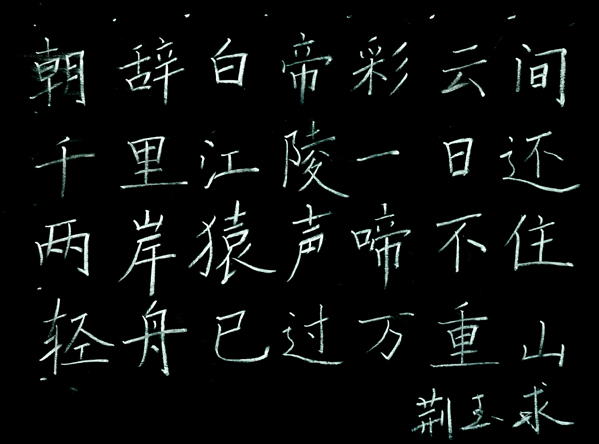 朝辞白帝彩云间
千里江陵一日还
两岸猿声啼不住
轻舟已过万重山
荆玉求